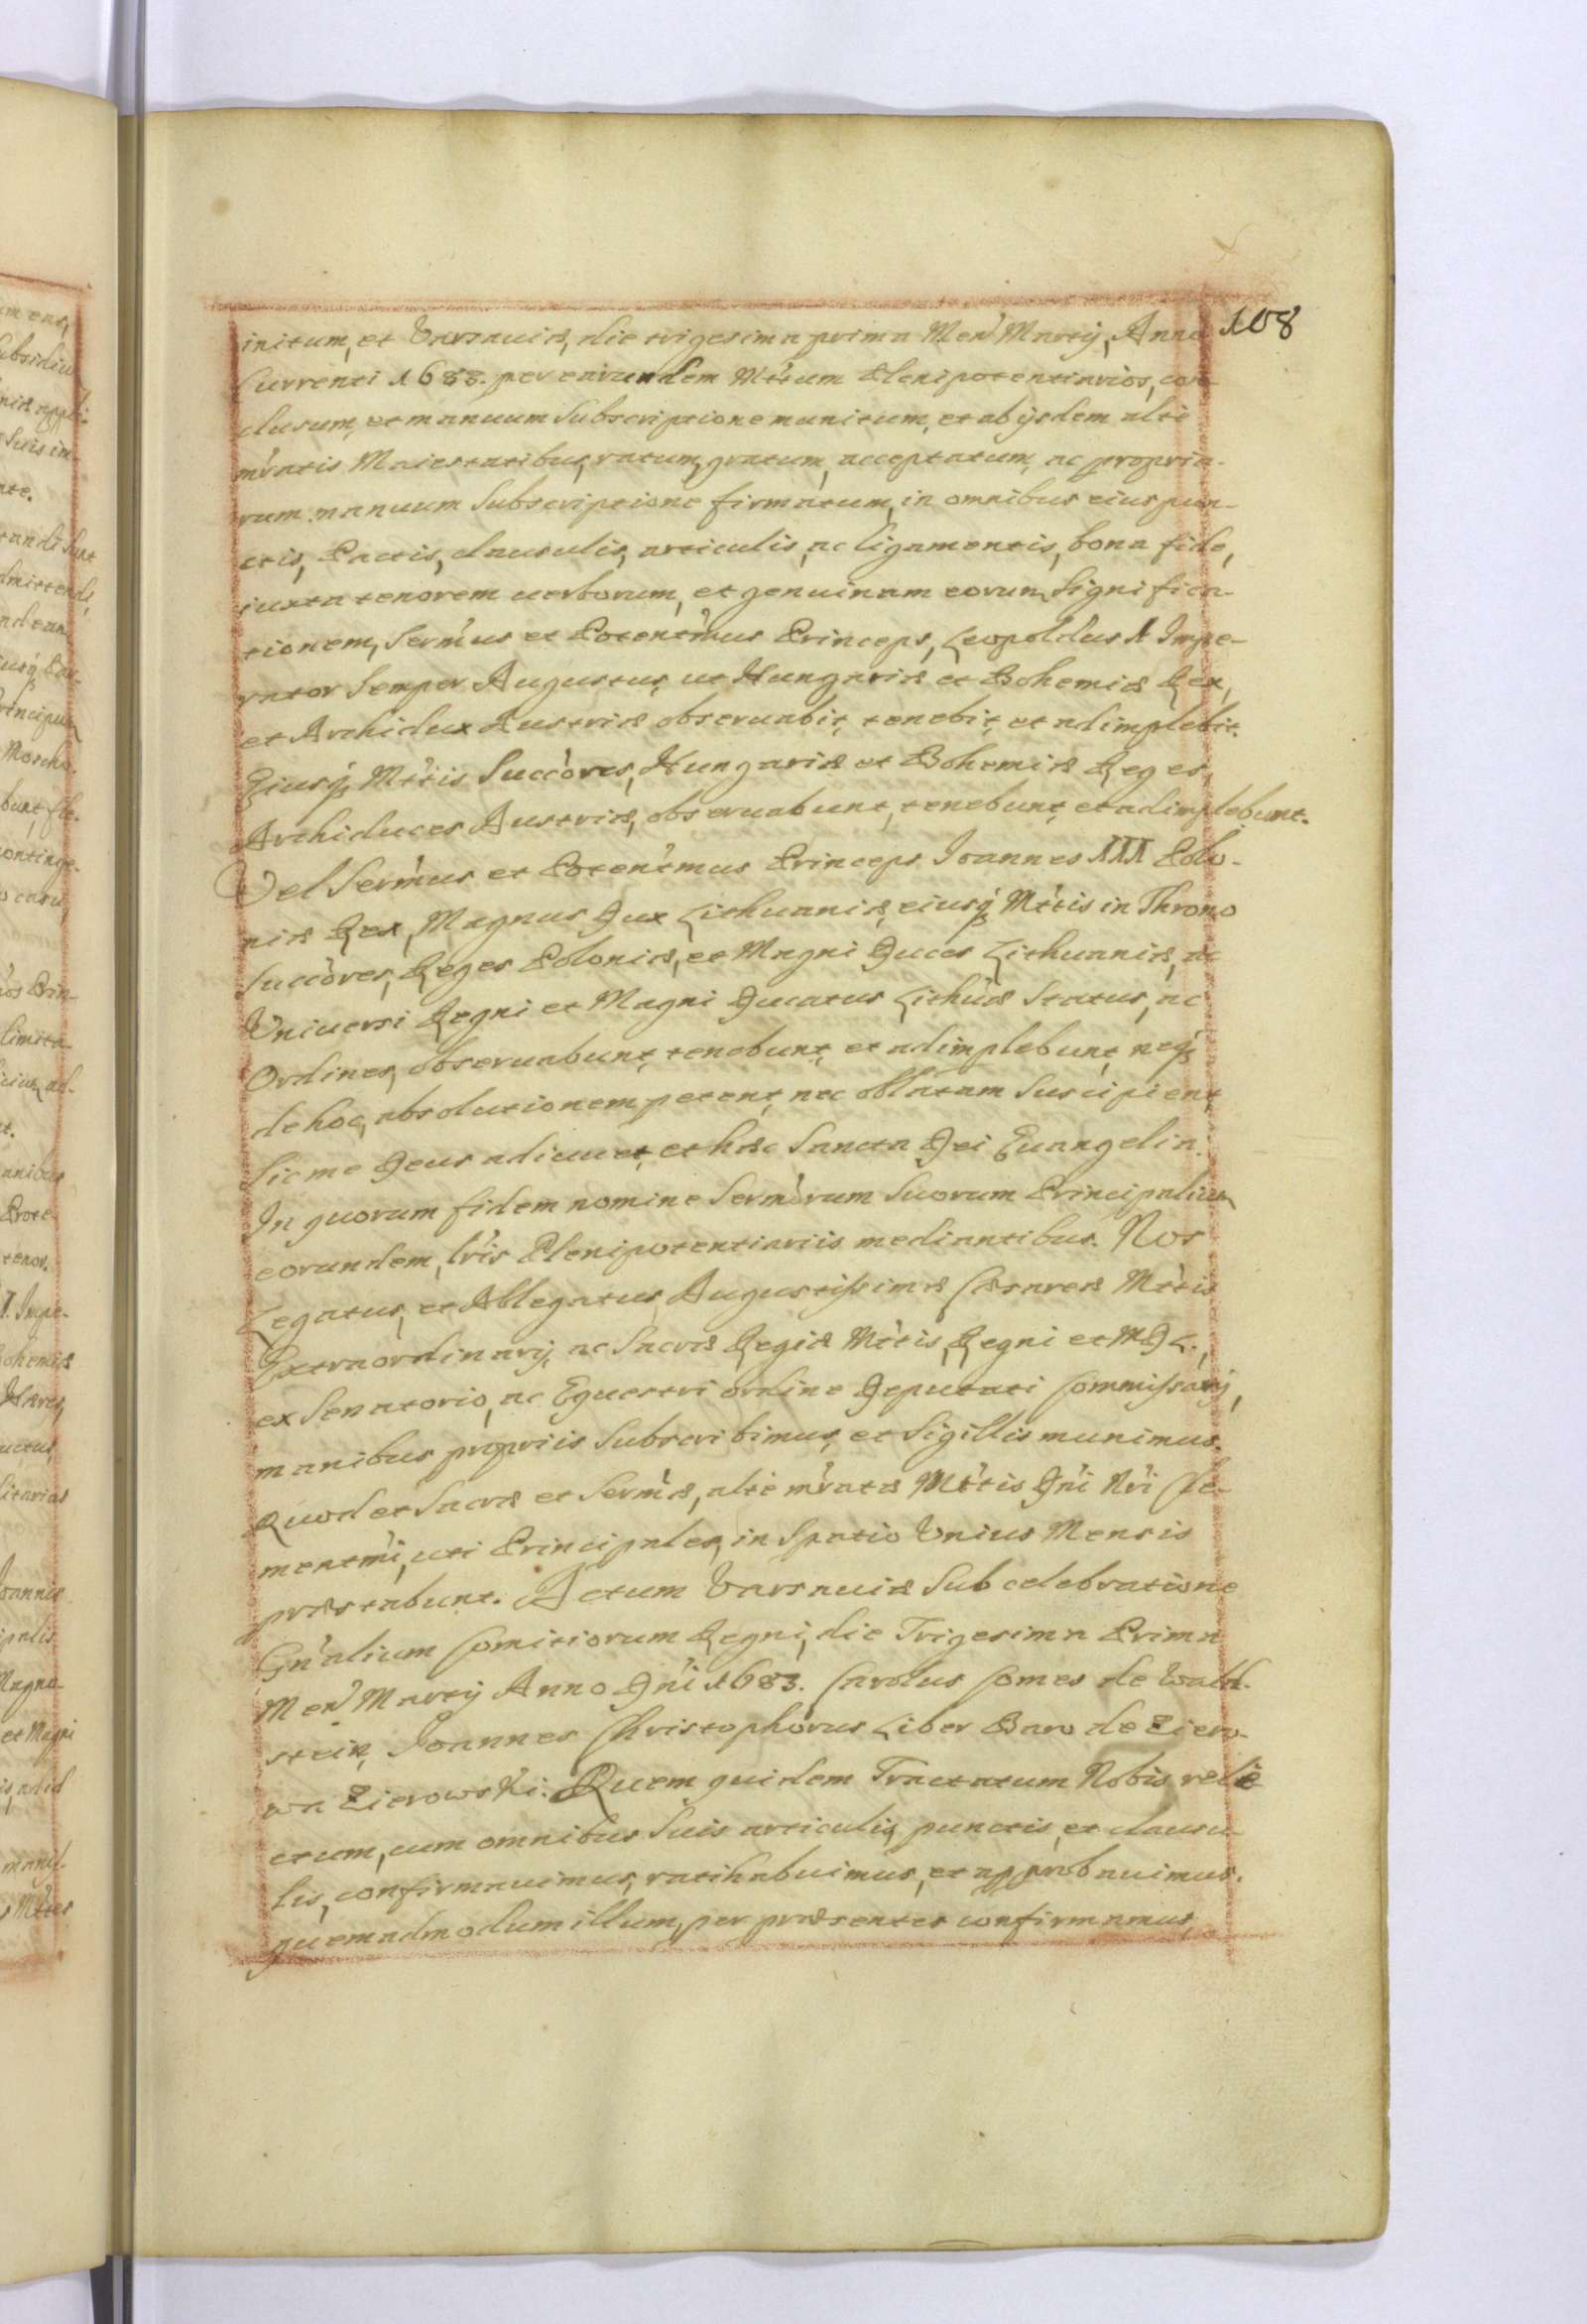 108
initum, et Varsauiæ, die trigesima prima Men' Martij, Anno
Currenti 1683. per earundem Mttum Plenipotentiarios, con-
clusum, et manuum Subscriptione munitum, et ab ijsdem alte
m'ratis Maiestatibus, ratum, gratum, acceptatum, ac propria-
rum manuum Subscriptione firmatum, in omnibus eius pun-
ctis, Pactis, clausulis, articulis, ac ligamentis, bona fide,
iuxta tenorem uerborum, et genuinam eorum Significa-
tionem, Serm'us et Potent'mus Princeps, Leopoldus I Impe-
rator Semper Augustus, ut Hungariæ et Bohemiæ Rex,
et Archidux Austriæ obseruabit, tenebit, et adimplebit.
Eiusq; Mttis Succ'ores, Hungariæ et Bohemiæ Reges,
Archiduces Austriæ, obseruabunt, tenebunt, et adimplebunt.
Vel Serm'us et Potent'mus Princeps Ioannes III Polo-
niæ Rex, Magnus Dux Lithuaniæ, eiusq; Mttis in Throno
Succ'ores, Reges Poloniæ, et Magni Duces Lithuaniæ, ac
Vniuersi Regni et Magni Ducatus Lith'uæ Status, ac
Ordines, obseruabunt, tenebunt, et adimplebunt, neq;
de hoc, absolutionem petent, nec oblatam Suscipient,
Sic me Deus adiuuet, et hæc Sancta Dei Euangelia.
In quorum fidem nomine Serm'orum Suorum Principalium
eorundem, lr'is Plenipotentiariis mediantibus. Nos
Legatus, et Ablegatus, Augustissimæ Cæsareæ Mttis
Extraordinarij, ac Sacræ Regiæ Mttis, Regni et M D L.,
ex Senatorio, ac Equestri ordine Deputati Commissarij,
manibus propriis Subscribimus, et Sigillis munimus.
Quod et Sacræ et Serm'æ, alte m'ratæ Mttis D'ni N'ri Cle-
ment'mi, uti Principales, in Spatio Vnius Mensis
præstabunt. Actum Varsauiæ Sub celebratione
Gn'alium Comitiorum Regni, die Trigesima Prima
Men' Martij Anno D'ni 1683. Carolus Comes de Wald-
stein, Ioannes Christophorus Liber Baro de Ziero-
wa Zierowski: Quem quidem Tractatum Nobis rele-
ctum, cum omnibus Suis articulis, punctis, et clausu-
lis, confirmauimus, ratihabuimus, et approbauimus.
quemadmodum illum, per præsentes confirmamus,